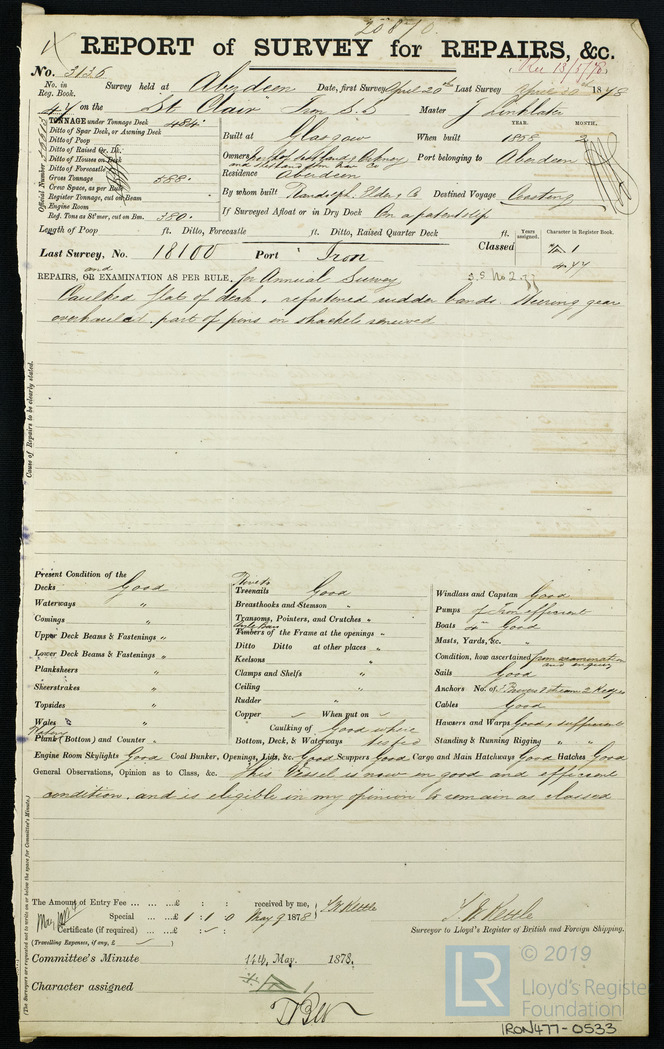 20870
REPORT of SURVEY for REPAIRS, &c.
No. 3136
No. in Reg. Book. Survey held at Aberdeen Date, first Survey April 20th Last Survey April 1878
44 on the "St Clair" Iron S.S Master J Linklater
TONNAGE under Tonnage Deck 484
Ditto of Spar Deck, or Awning Deck
Ditto of Poop
Ditto of Raised Qr. Dk.
Ditto of Houses on Deck
Ditto of Forecastle
Gross Tonnage 588
Crew Space, as per Rule
Register Tonnage, cut on Beam
Engine Room
Reg. Tons as St'mer, cut on Bm. 380
Official Number
YEAR. MONTH.
Built at Glasgow When built 1858 2
Owners North of Scotland & Orkney and Shetland Steam Nav Co Port belonging to Aberdeen
Residence Aberdeen
By whom built Randolph, Elder & Co Destined Voyage Coasting
If Surveyed Afloat or in Dry Dock On a patent slip
Length of Poop ft. Ditto, Forecastle ft. Ditto, Raised Quarter Deck ft.
Years assigned. Character in Register Book.
Last Survey, No. 18100 Port Iron Classed A 1
4.77
S.S. No 2.77
REPAIRS, and OR EXAMINATION AS PER RULE, for Annual Survey
Caulked flats of deck, refastened rudder bands. Steering gear
overhauled. part of pins in shackels renewed
Cause of Repairs to be clearly stated.
Present Condition of the
Decks Good
Waterways "
Comings "
Upper Deck Beams & Fastenings "
Lower Deck Beams & Fastenings "
Planksheers "
Sheerstrakes "
Topsides "
Wales "
Plank (Bottom) and Counter "
Rivets
Treenails Good
Breasthooks and Stemson "
Transoms, Pointers, and Crutches "
Timbers of the Frame at the openings "
Ditto Ditto at other places "
Keelsons "
Clamps and Shelfs "
Ceiling "
Rudder "
Copper ✓ When put on ✓
Caulking of Bottom, Deck, & Waterways Good where tested
Windlass and Capstan Good
Pumps of Iron efficient
Boats 4 Good
Masts, Yards, &c. "
Condition, how ascertained from examination and enquiry
Sails Good
Anchors No. of 3 Bowers 1 Stream 2 Kedges
Cables Good
Hawsers and Warps Good & sufficient
Standing & Running Rigging " "
Engine Room Skylights Good Coal Bunker, Openings, Lids, &c. Good Scuppers Good Cargo and Main Hatchways Good Hatches Good
General Observations, Opinion as to Class, &c. This Vessel is now in good and efficient
condition, and is eligible in my opinion to remain as classed
(The Surveyors are requested not to write on or below the space for Committee's Minute.)
The Amount of Entry Fee ... ... ...£ : : received by me,
Special ... ...£ 1 : 1 : 0 May 9 1878 J. W Kettle
Certificate (if required) ... ...£ : - :
(Travelling Expenses, if any, £ )
J. W Kettle
Surveyor to Lloyd's Register of British and Foreign Shipping.
Committee's Minute 14th May. 1878.
Character assigned A 1
© 2019
LR
Lloyd's Register
Foundation
IRON477-0533